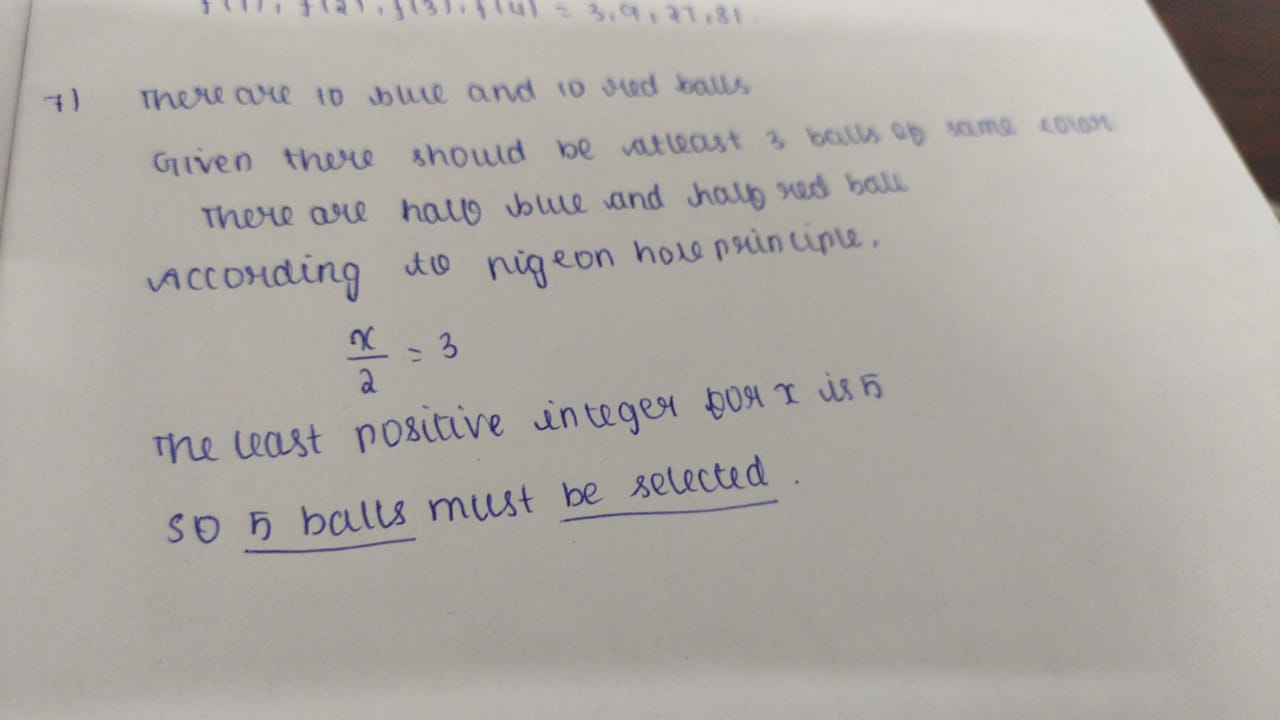 f(1), f(2), f(3), f(4) = 3, 9, 27, 81.
7) There are 10 blue and 10 red balls
Given there should be atleast 3 balls of same color
There are half blue and half red ball
According to pigeon hole principle.
x/2 = 3
The least positive integer for x is 5
so 5 balls must be selected.